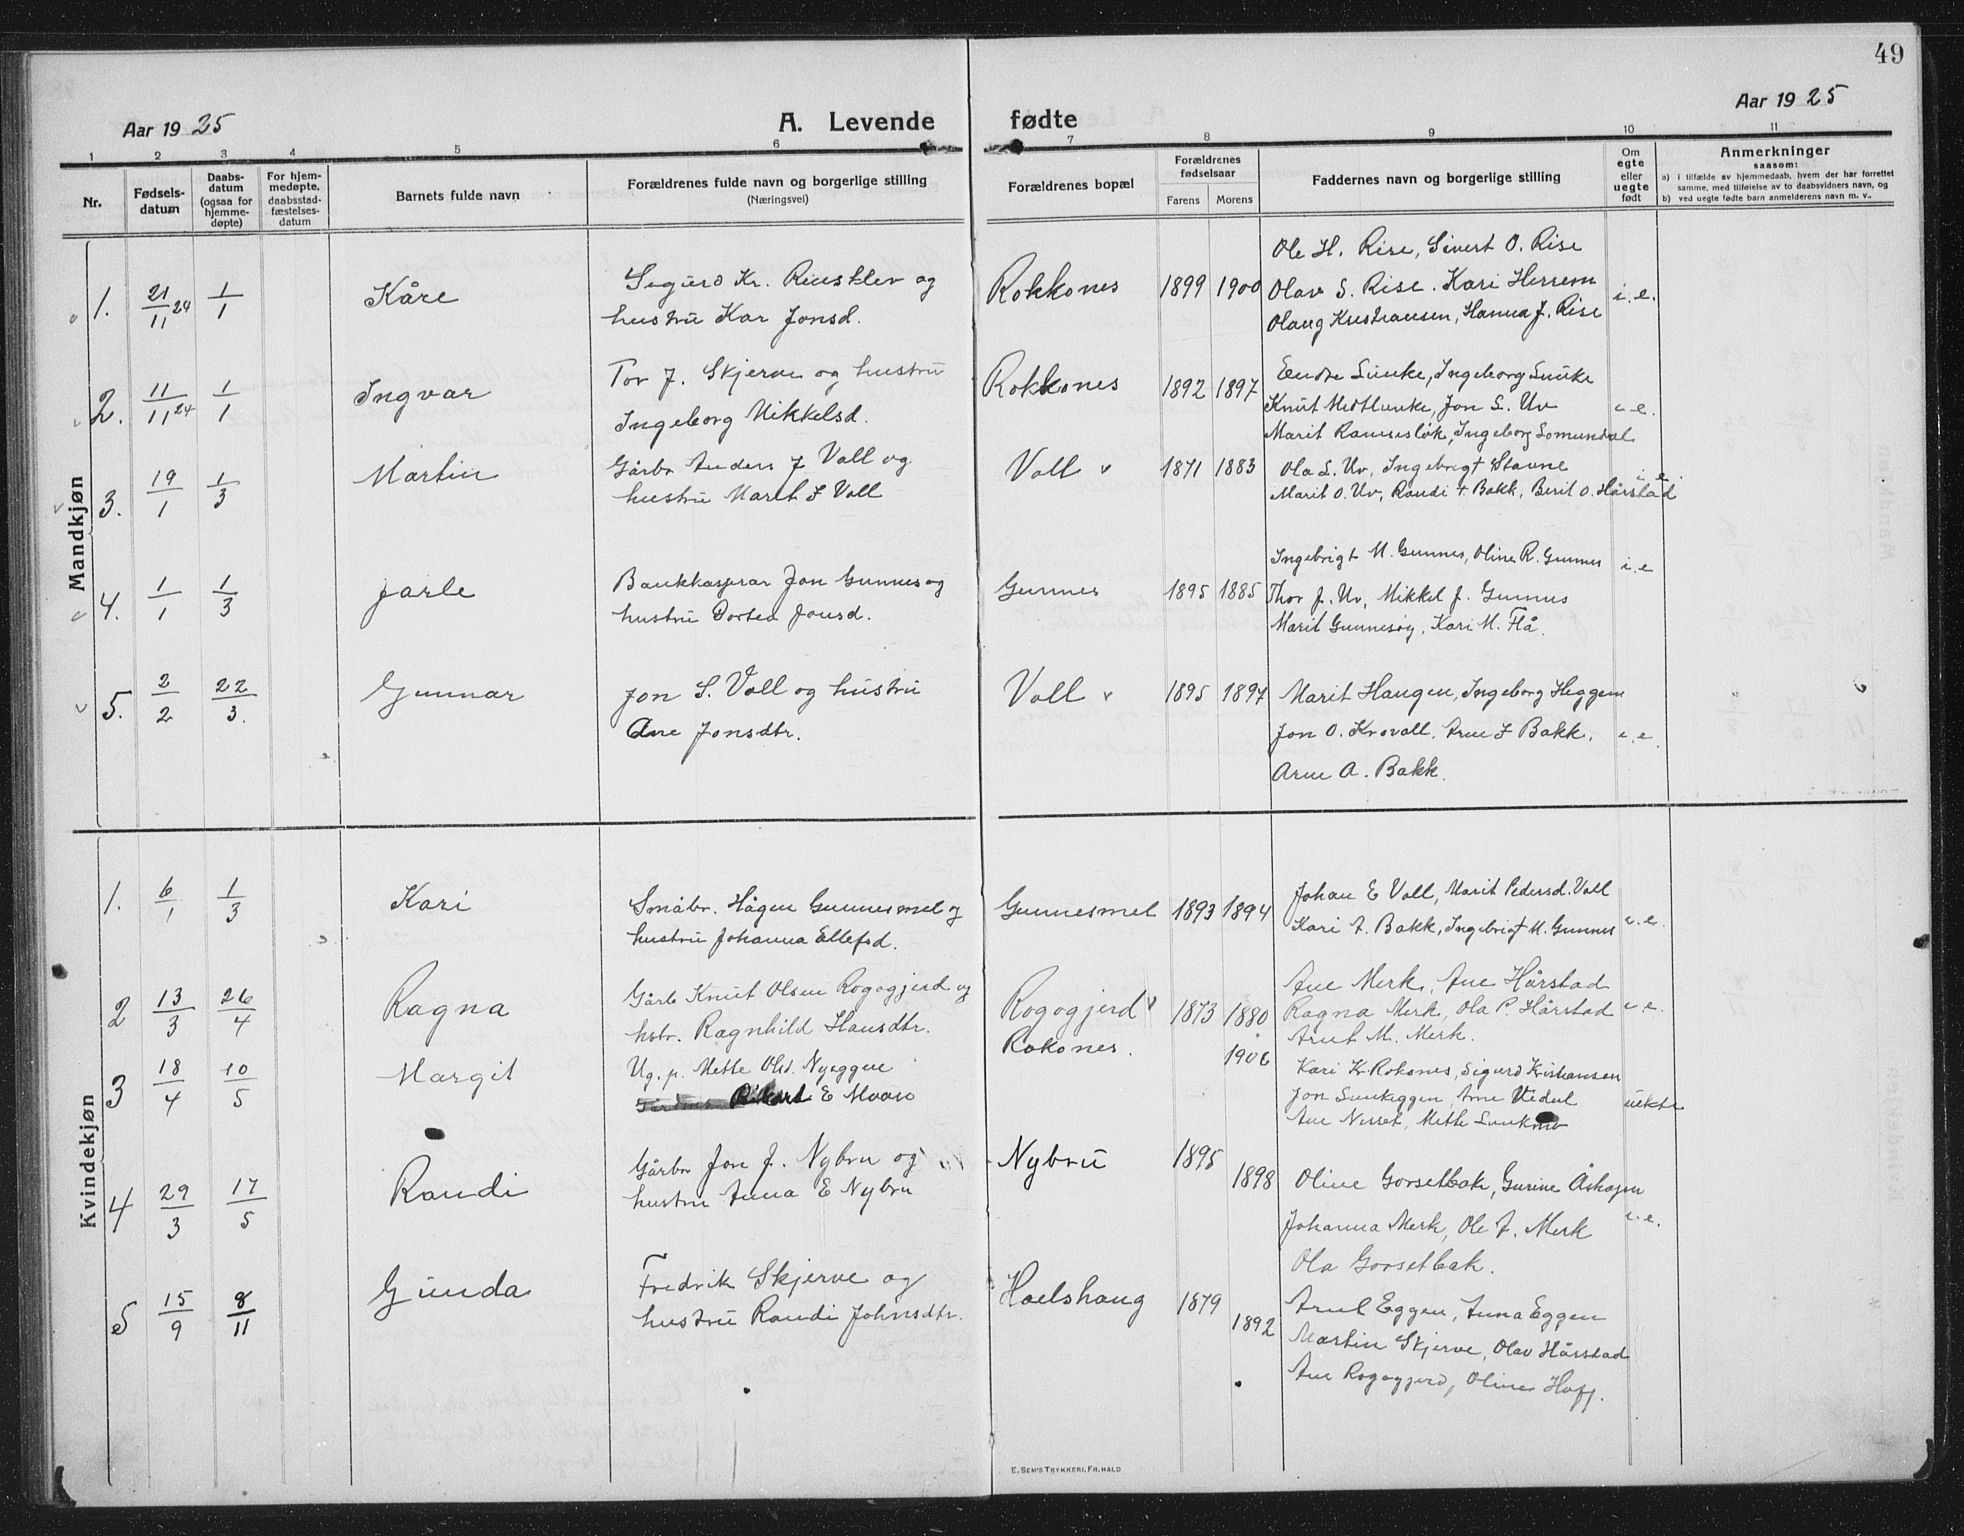 49
Aar 1925
A. Levende fødte
Aar 1925
1 2 3 4 5 6 7 8 9 10 11
Nr.
Fødsels-
datum
Daabs-
datum
(ogsaa for
hjemme-
døpte)
For hjem-
medøpte,
daabsstad-
fæstelses-
datum
Barnets fulde navn
Forældrenes fulde navn og borgerlige stilling
(Næringsvei)
Forældrenes bopæl
Forældrenes
fødselsaar
Farens Morens
Faddernes navn og borgerlige stilling
Om
egte
eller
uegte
født
Anmerkninger
saasom:
a) I tilfælde av hjemmedaab, hvem der har forrettet
samme, med tilføielse av to daabsvidners navn, og
b) ved uegte fødte barn anmelderens navn m. v..
Mandkjøn
1. 21/11 24 1/1 Kåre
Sigurd Kr. og
hustru Kar Jonsd.
Rokkones 1899 1900
Ole H. Rise, Sivert O. Rise
Olav S. Rise. Kari Herrem
Olaug Kristiansen, Hanna J. Rise
i.e.
2. 11/11 24 1/1 Ingvar
Tor J. Skjerve og hustru
Ingeborg Mikkelsd.
Rokkones 1892 1897
Endre Lunke, Ingeborg Lunke
Knut Medtlunke, Jon L. Uv
Marit Ramsesløk, Ingeborg Lomundal
i.e.
3. 19/1 1/3 Martin
Gårbr Anders J Voll og
hustru Marit J Voll
Voll 1871 1883
Ola L. Uv, Ingebrigt Stavne
Marit O. Uv, Randi A Bakk, Berit O. Hårstad
i.e.
4. 1/1 1/3 Jarle
Bankkasserar Jon Gunnes og
hustru Dortea Jonsd.
Gunnes 1895 1885
Ingebrigt M. Gunnes, Oline R. Gunnes
Thor J. Uv, Mikkel J. Gunnes
Marit Gunnesøy, Kari M. Flå.
i.e
5. 2/2 22/3. Gunnar
Jon S. Voll og hustru
Ane Jonsdtr.
Voll 1895 1897
Marit Haugen, Ingeborg Heggem
Jon O. Krovoll. Arne J Bakk.
Arne A. Bakk.
i.e.
Kvindekjøn
1. 6/1 1/3 Kari
Småbr. Hågen Gunnesmel og
hustru Johanna Ellefsd.
Gunnesmel 1893 1894
Johan E Voll, Marit Pedersd. Voll
Kari A. Bakk, Ingebrigt M. Gunnes
i.e.
2 13/3 26/4 Ragna
Gårb Knut Olsen Rogogjerd og
hstr. Ragnhild Hansdtr.
Rogogjerd 1873 1880
Ane Merk, Ane Hårstad
Ragna Merk, Ola P. Hårstad
Arnt M. Merk.
i.e.
3 18/4 10/5 Margit
Ug. p. Mette Olsd. Nyeggen
E Moaso
Rokones. 1906
Kari Kr. Rokones, Sigurd Kristiansen
Jon Lunkeggen, Arne Uidul
Ane Nesset, Mette
uekte
4 29/3 17/5 Randi
Gårbr Jon J. Nybru og
hustru Anna E Nybru
Nybru 1895 1898
Oline Gorsetbak, Gurine Åshagen
Johanna Merk, Ole A. Merk
Ola Gorsetbak.
i.e.
5 15/9 8/11 Gunda
Fredrik Skjerve og
hustru Randi Johnsdtr.
Hoelshaug 1879 1892
Arnt Eggen, Anna Eggen
Martin Skjerve, Olav Hårstad
Ane Rogogjerd, Oline Hoff.
E. Sem's Trykkeri, Fr.hald